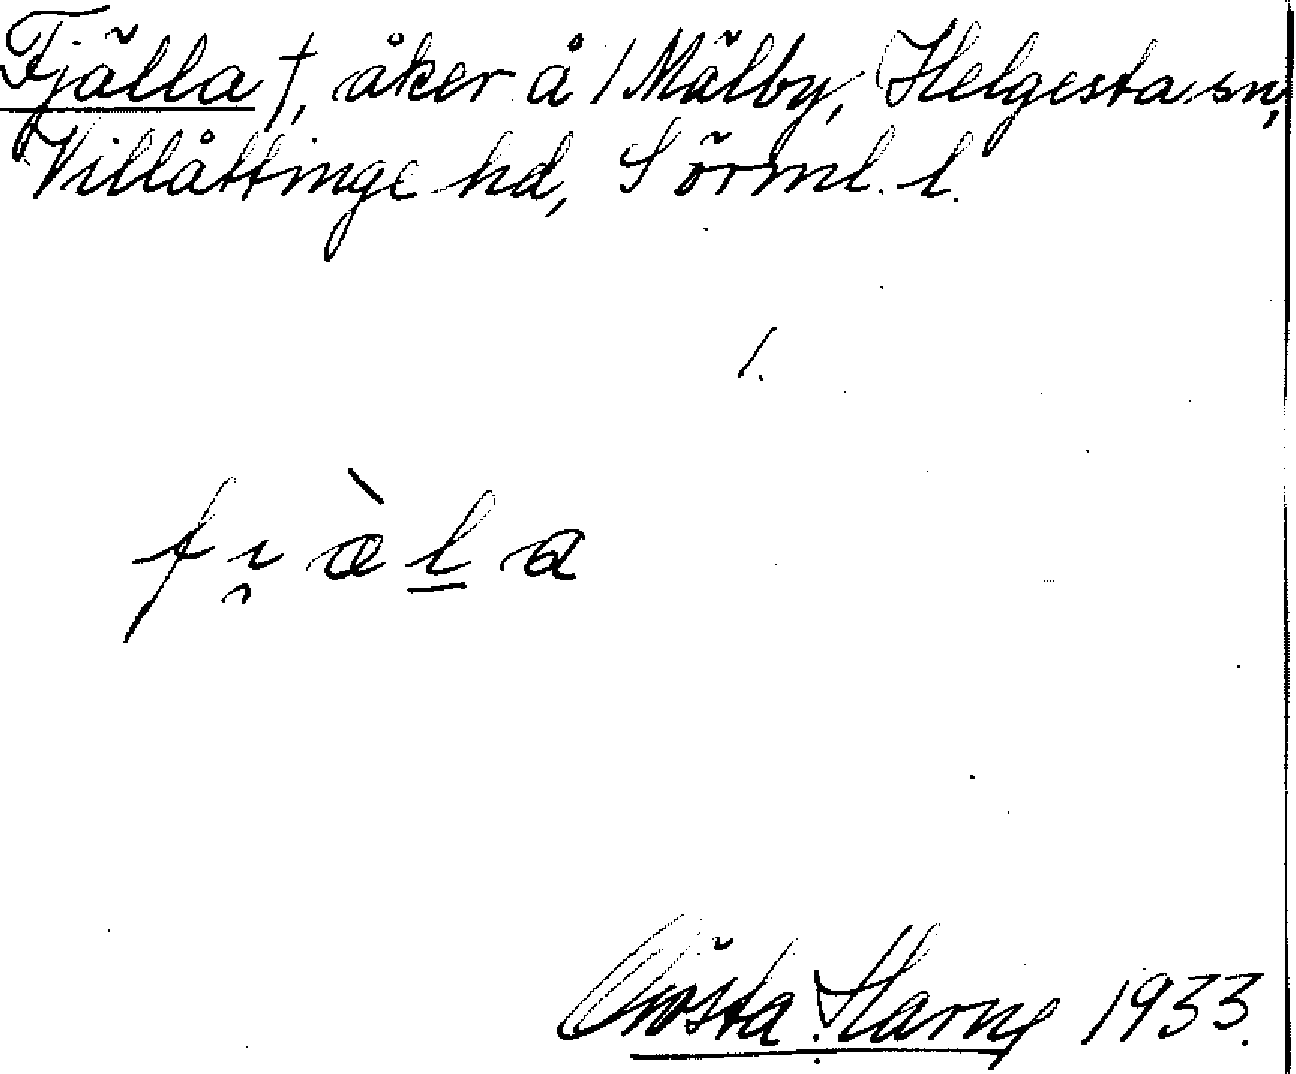 Fjälla †, åker å 1 Mälby, Helgesta sn,
Villåttinge hd, Sörml. l.
1.
fi̯æ̀l̠a
Gösta Harne 1933.